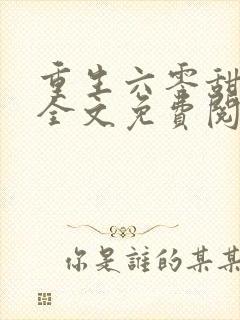 重生六零甜
全文免費閱
你是誰的某某